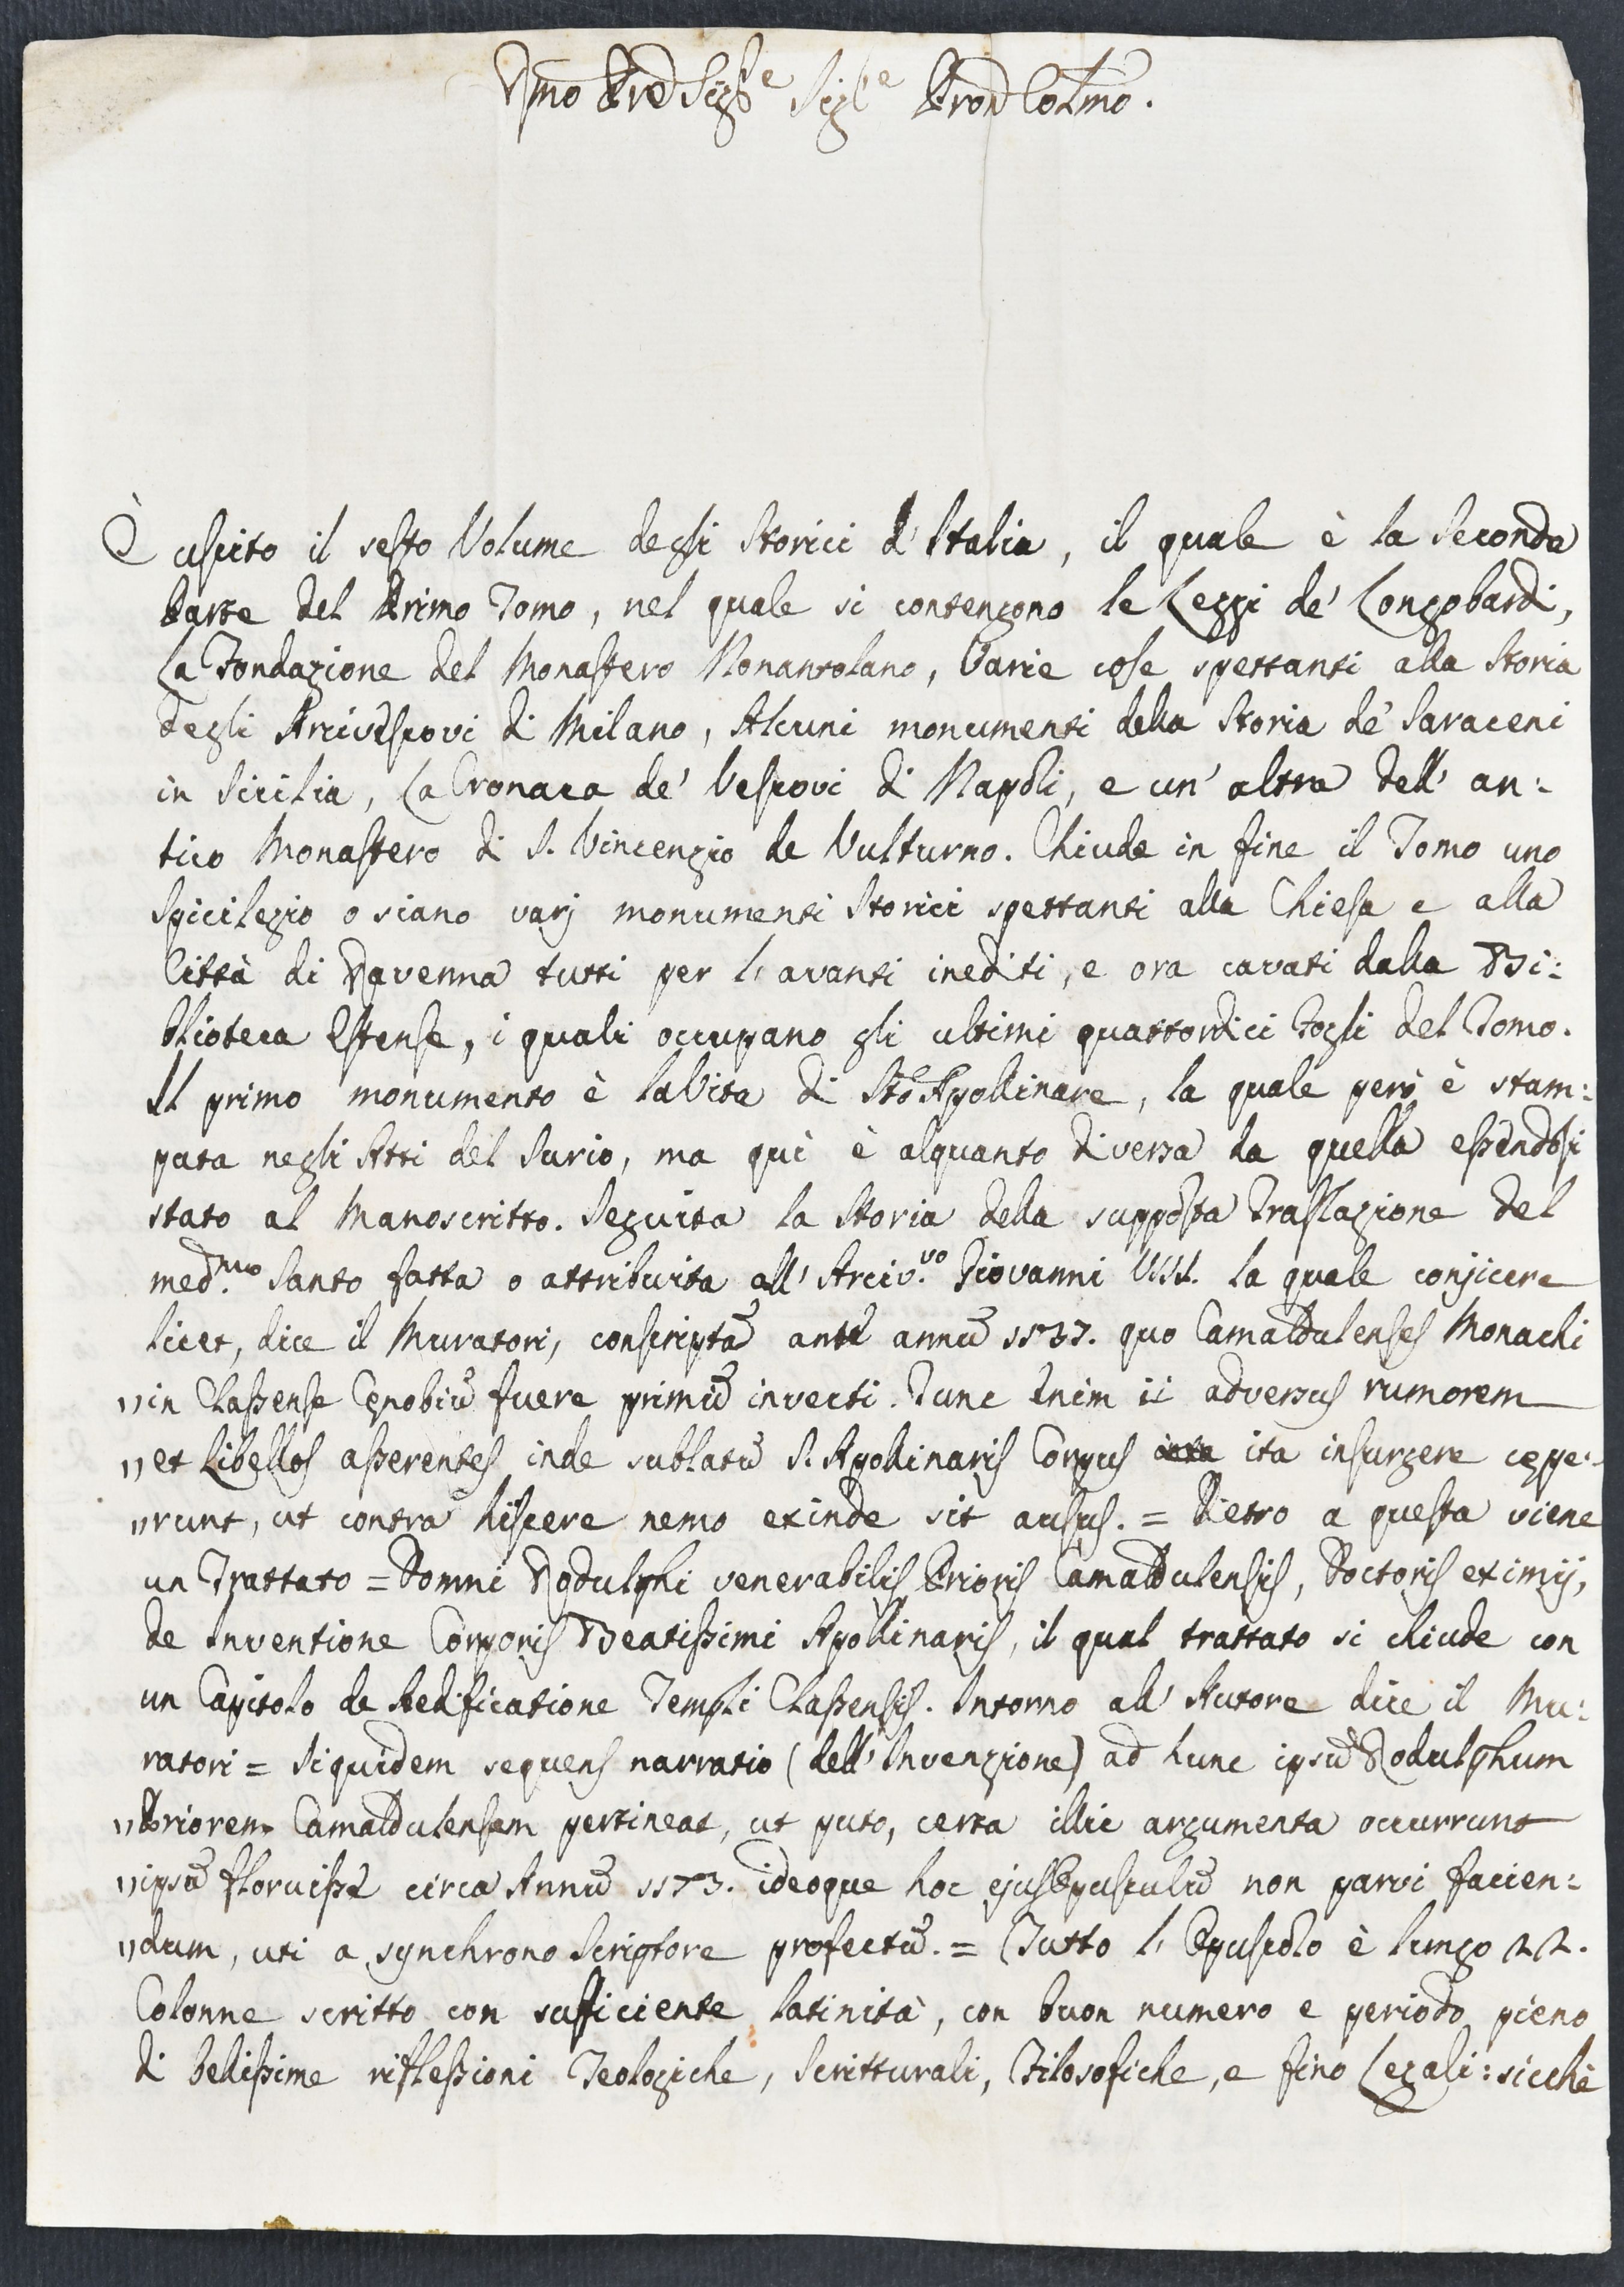 Illmo Sigre Sigre Pron Colmo.
È uscito il sesto Volume degli Storici d'Italia, il quale è la seconda
Parte del Primo Tomo, nel quale si contengono le Leggi de' Longobardi,
La Fondazione del Monastero Nonantolano, Varie cose spettanti alla Storia
degli Arcivescovi di Milano, Alcuni monumenti della Storia de' Saraceni
in Sicilia, La Cronaca de' Vescovi di Napoli, e un' altra dell' an:
tico Monastero di S. Vincenzio de Vulturno. Chiude in fine il Tomo uno
Spicilegio o siano varj monumenti Storici spettanti alla Chiesa e alla
Città di Ravenna tutti per l' avanti inediti, e ora cavati dalla Bi:
blioteca Estense, i quali occupano gli ultimi quattordici Fogli del Tomo.
Il primo monumento è la Vita di Sto Apollinare, la quale però è stam:
pata negli Atti del Surio, ma quì è alquanto diversa da quella essendosi
stato al Manoscritto. Seguita la Storia della supposta Traslazione del
med.mo Santo fatta o attribuita all' Arciv.vo Giovanni VIII. la quale conjicere
licet, dice il Muratori, conscriptā ante annū 1137. quo Camaldulenses Monachi
„in Classense Cęnobiū fuere primū invecti. Tunc enim ii adversus rumorem
„et Libellos asserentes inde sublatū S. Apollinaris Corpus ita insurgere cępe:
„runt, ut contra hiscere nemo exinde sit ausus. = Dietro a questa viene
un Trattato = Domni Rodulphi venerabilis Prioris Camaldulensis, Doctoris eximij,
de Inventione Corporis Beatissimi Apollinaris, il qual trattato si chiude con
un Capitolo de Aedificatione Templi Classensis. Intorno all' Autore dice il Mu:
ratori = Siquidem sequens narratio (dell' Invenzione) ad hunc ipsū Rodulphum
„Priorem Camaldulensem pertineat, ut puto, certa illic argumenta occurrunt
„ipsū floruisse circa Annū 1173. ideoque hoc ejus Opusculū non parvi facien:
„dum, uti a synchrono Scriptore profectū. = Tutto l' Opuscolo è lungo 22.
Colonne scritto con sufficiente latinità, con buon numero e periodo pieno
di bellissime riflessioni Teologiche, Scritturali, Filosofiche, e fino Legali: sicchè